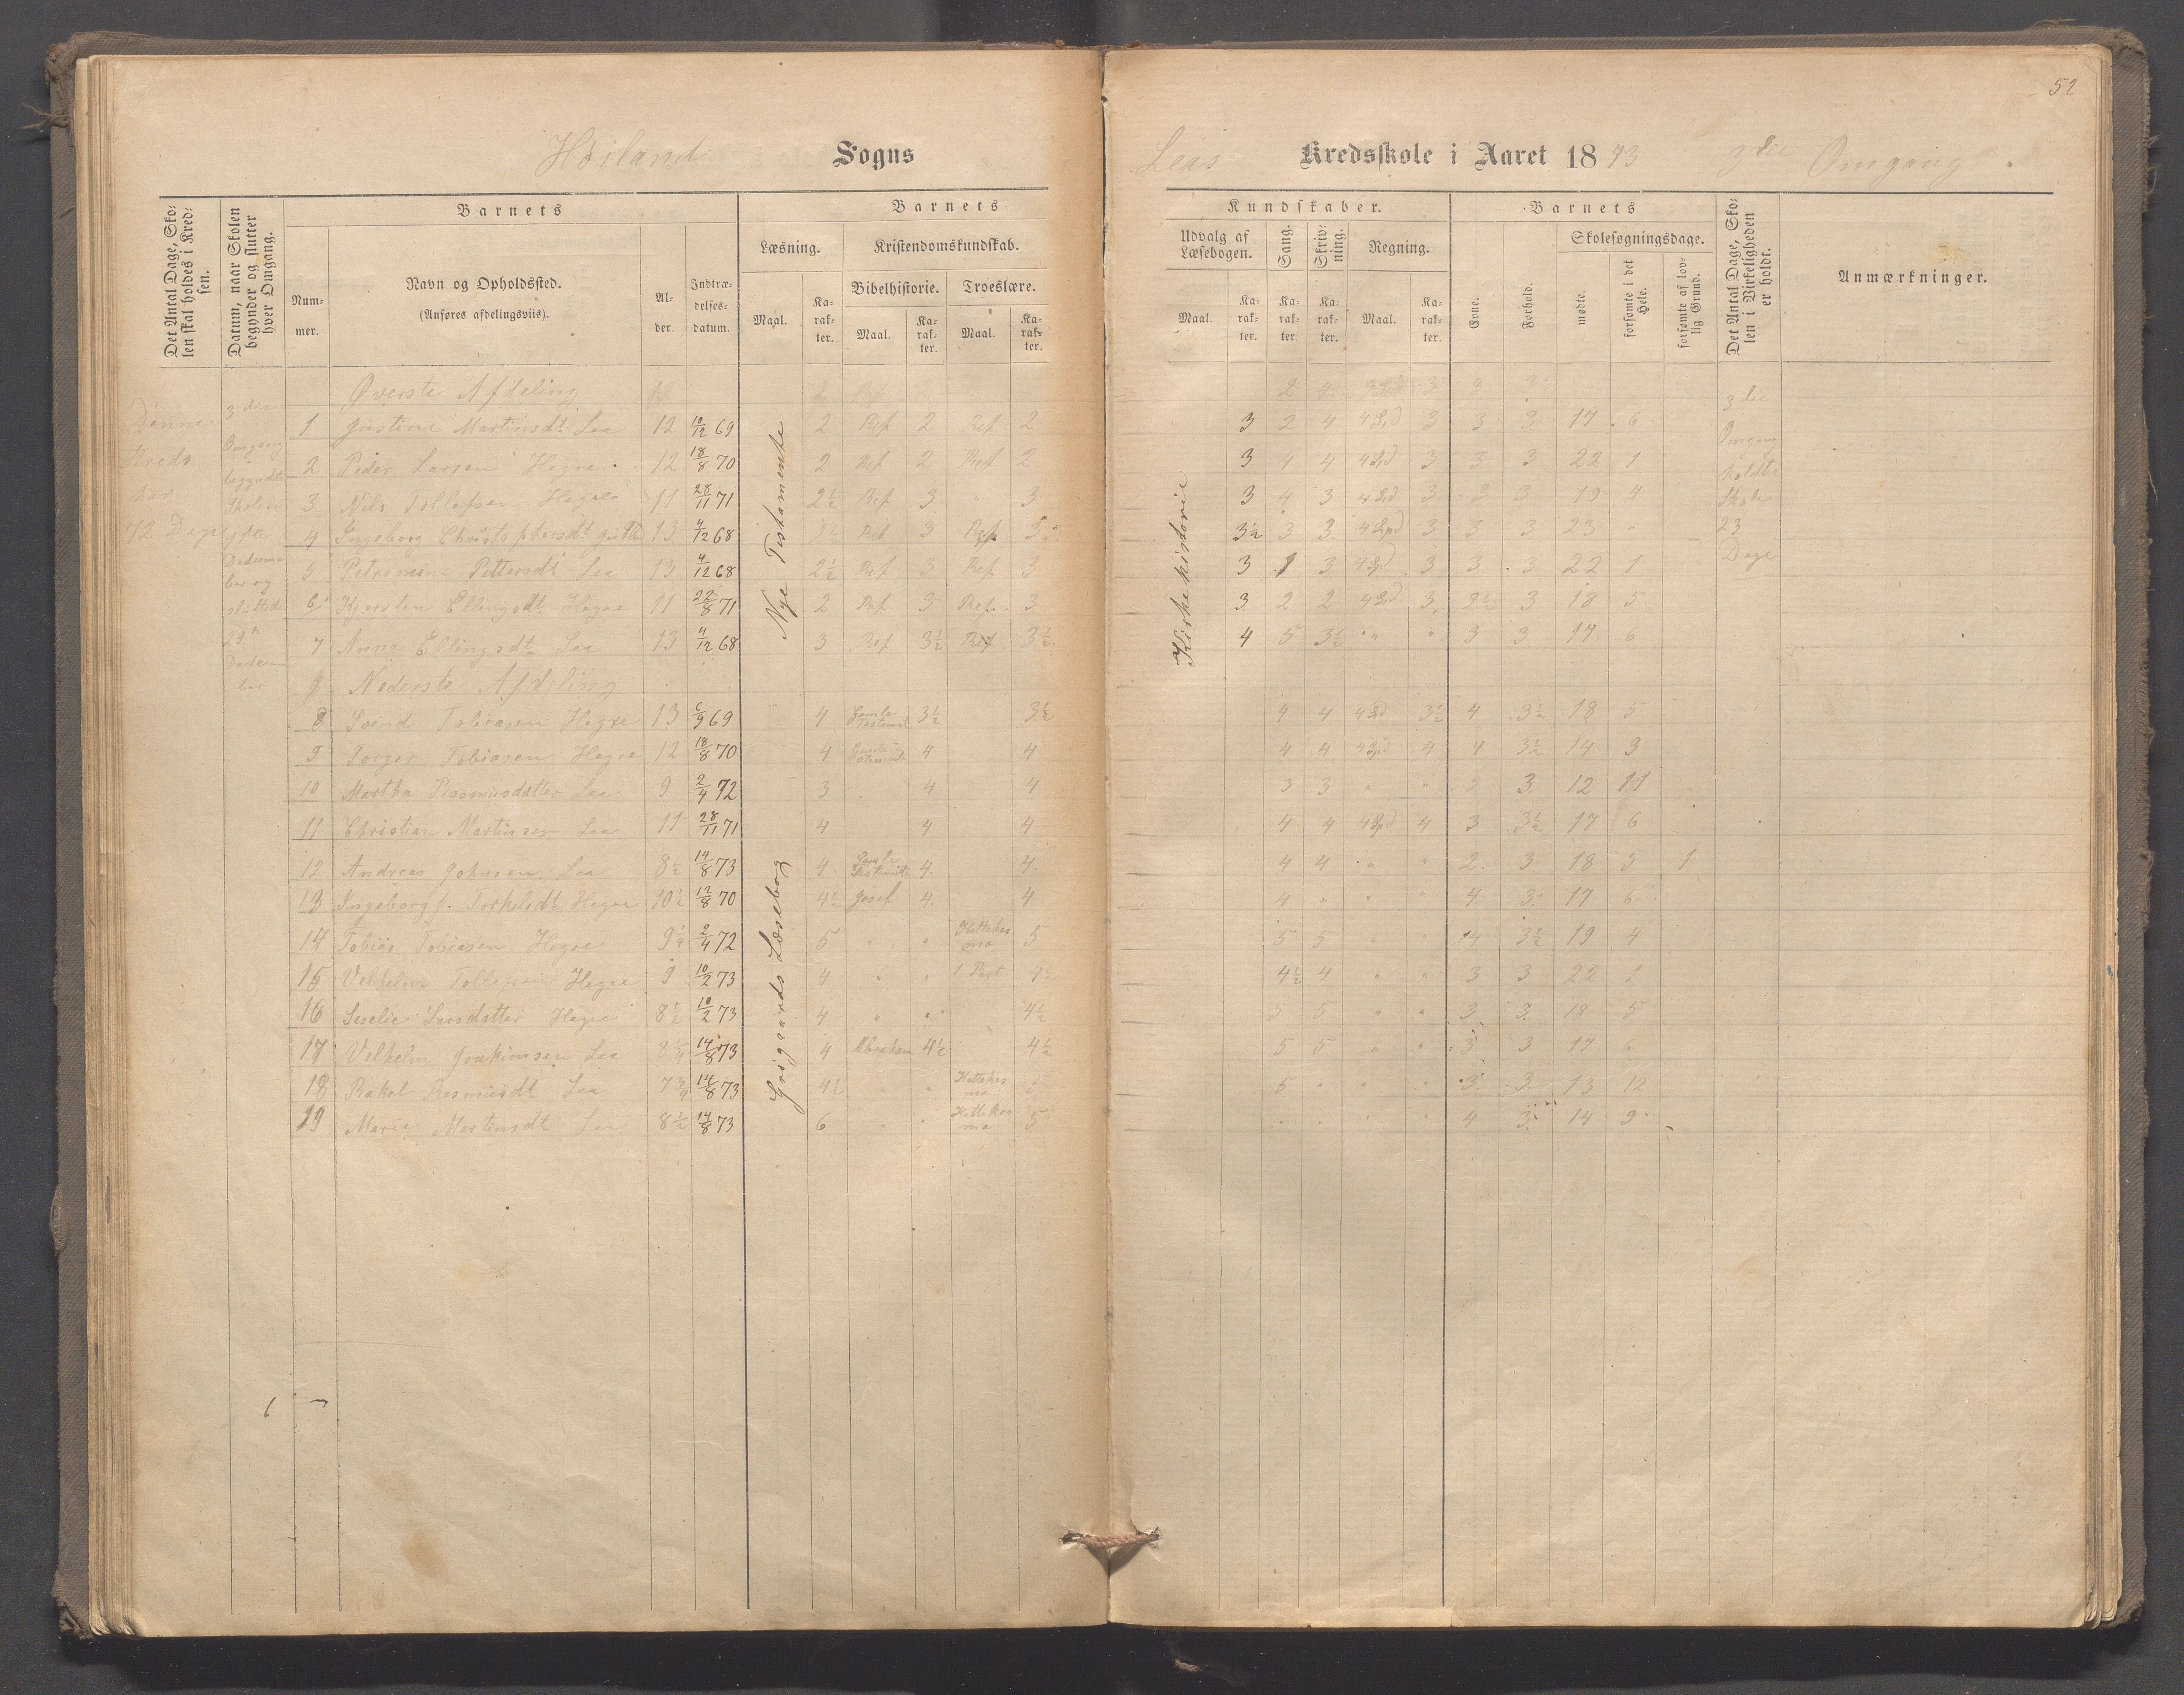 52
Høiland Sogns
Leas Kredsskole i Aaret 1873 3die Omgang.
Det Antal Dage, Skolen skal holdes i Kredsen.
Datum, naar Skolen begynder og slutter hver Omgang.
Barnets
Nummer.
Navn og Opholdssted.
(Anføres afdelingsviis).
Alder.
Indtrædelsesdatum.
Barnets
Læsning.
Maal.
Karakter.
Kristendomskundskab.
Bibelhistorie.
Maal.
Karakter.
Troeslære.
Maal.
Karakter.
Kundskaber.
Udvalg af Læsebogen.
Maal.
Karakter.
Sang.
Karakter
Skrivning.
Karakter.
Regning.
Maal.
Karakter.
Barnets
Evne.
Forhold.
Skolesøgningsdage.
mødte.
forsømte i det Hele.
forsømte af lovlig Grund.
Det Antal Dage, Skolen i Virkeligheden er holdt.
Anmærkninger.
Denne Kreds har 72 Dage
3die Omgang begyndte Skolen
og sluttede 29n
3die Omgang holdtes Skole 23 Dage
Nye Testamente
Kirkehistorie
Øverste Afdeling
1 Gustine Martinsdt Lea 12 10/12 69 2 Ref 2 Ref 2 3 2 4 4 Spd 3 3 3 17 6
2 Peder Larsen Hegre 12 18/8 70 2 Ref 2 Ref 2 3 4 4 4 Spd 3 3 3 22 1
3 Nils Tollefsen Hegre 11 28/11 71 2½ Ref 3 " 3 3 4 3 4 Spd 3 3 3 19 4
4 Ingeborg 13 4/12 68 Ref 3 Ref 3½ 3 3 4 Spd 3 3 3 23 "
5 Petromine Pettersdt Lea 13 4/12 68 2½ Ref 3 Ref 3 3 1 3 4 Spd 3 3 3 22 1
6 Kjersten Ellingsdt Hegre 11 22/8 71 2 Ref 3 Ref 3 3 2 2 4 Spd 3 2½ 3 18 5
7 Anna Ellingsdt Lea 13 4/12 68 3 Ref 3½ Ref 3½ 4 5 3½ " " 3 3 17 6
Nederste Afdeling
Grøgaards Læsebog
8 Svend Tobiasen Hegre 13 6/9 69 4 Gamle Testamt 3½ 3½ 4 4 4 Spd 3½ 4 3½ 18 5
9 Torger Tobiasen Hegre 12 18/8 70 4 Gamle Testamt 4 4 4 4 4 Spd 4 4 3½ 14 9
10 Martha Rasmusdatter Lea 9 2/4 72 3 4 4 3 3 " " 3 3 12 11
11 Christian Martinsen Lea 11 28/11 71 4 4 4 4 4 4 Spd 4 3 3½ 17 6
12 Andreas Johnsen Lea 8½ 14/8 73 4 Gamle Testamt 4 4 4 4 " " 2 3 18 5 1
13 Ingeborg J. Torkelsdt Hegre 10½ 12/8 70 4½ Josef 4 4 4 " " " 4 3 17 6
14 Tobias Tobiasen Hegre 9¼ 2/4 72 5 " " 5 5 5 " 4 3½ 19 4
15 Vilhelm Tollefsen Hegre 9 10/2 73 4 " " 1 Part 4½ 4½ 4 " " 3 3 22 1
16 Seselie Larsdatter Hegre 8½ 10/2 73 4 " " 4½ 5 5 " " 3 3 18 5
17 Vilhelm Joakimsen Lea 14/8 73 4 Abraham 4½ 4½ 5 5 " " 3 3 17 6
18 Rakel Rasmusdt Lea 7¾ 14/8 73 4½ " " 5 " " " 3 3 13 12
19 Marie Martinsdt Lea 8½ 14/8 73 6 " " 5 " " 4 3 14 9